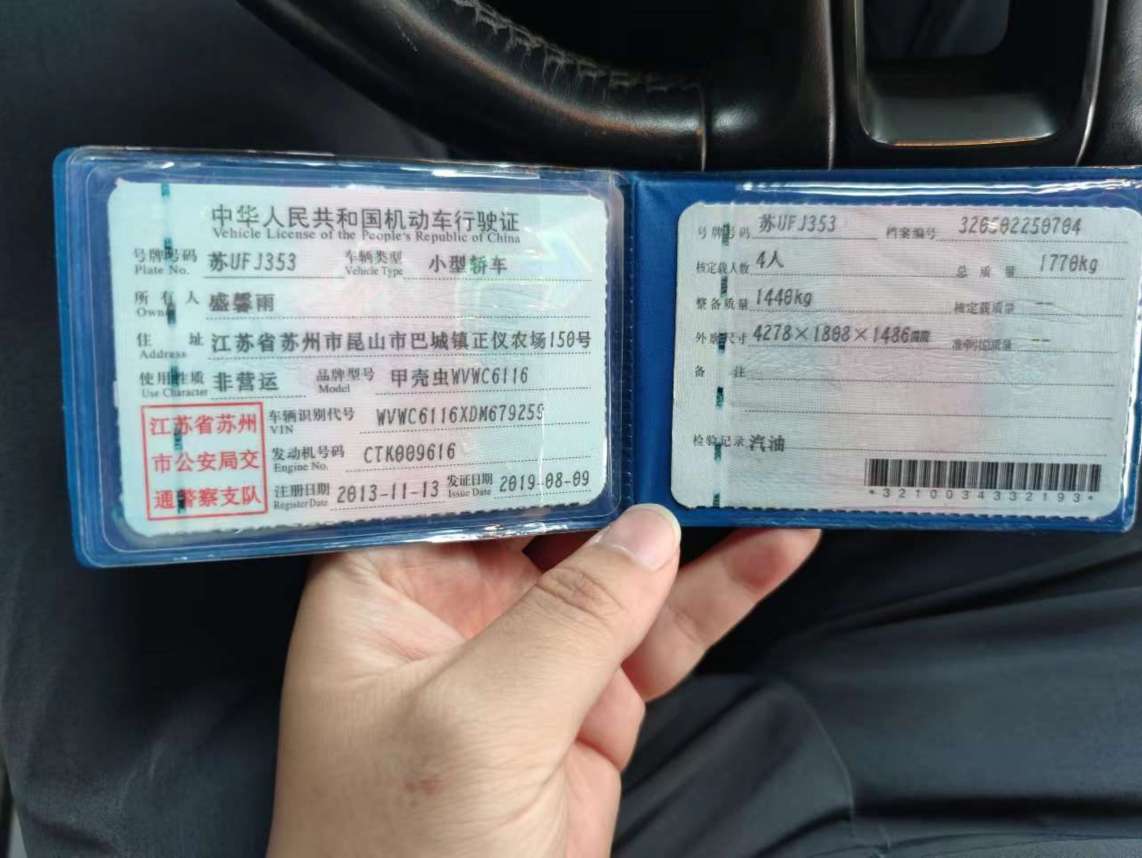 中华人民共和国机动车行驶证
Vehicle License of the People's Republic of China
号牌号码 苏UFJ353 车辆类型 小型轿车
Plate No. Vehicle Type
所有人 盛馨雨
Owner
住址 江苏省苏州市昆山市巴城镇正仪农场150号
Address
使用性质 非营运 品牌型号 甲壳虫WVWC6116
Use Character Model
江苏省苏州
市公安局交
通警察支队
车辆识别代号 WVWC6116XDM679259
VIN
发动机号码 CTK009616
Engine No.
注册日期 2013-11-13 发证日期 2019-08-09
Register Date Issue Date
号牌号码 苏UFJ353 档案编号
核定载人数 4人 总质量 1770kg
整备质量 1440kg 核定载质量 --
外廓尺寸 4278×1808×1486mm 准牵引总质量 --
备注
检验记录 汽油
*3210034332193*